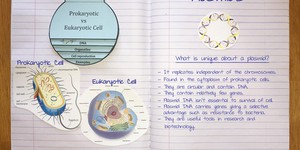 Prokaryotic
vs
Eukaryotic Cell
DNA
Organelles
Cell reproduction
Prokaryotic Cell
Eukaryotic Cell
What is unique about a plasmid?
- It replicates independent of the chromosomes.
- Found in the cytoplasm of prokaryotic cells.
- They are circular and contain DNA.
- They contain relatively few genes.
- Plasmid DNA isn't essential to survival of cell.
- Plasmid DNA carries genes giving a selective
advantage such as resistance to bacteria.
- They are useful tools in research and
biotechnology.